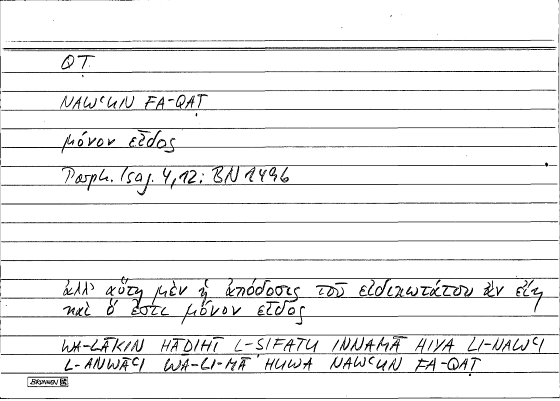 QṬ
NAWʿUN FA-QAṬ
μόνον εἶδος
Porph. Isag. 4,12; BN 149b
ἀλλ' αὕτη μὲν ἡ ἀπόδοσις τοῦ εἰδικωτάτου ἂν εἴη
καὶ ὅ ἐστι μόνον εἶδος
WA-LĀKIN HĀḎIHĪ L-ṢIFATU INNAMĀ HIYA LI-NAWʿI
L-ANWĀʿI WA-LI-MĀ HUWA NAWʿUN FA-QAṬ
BRUNNEN